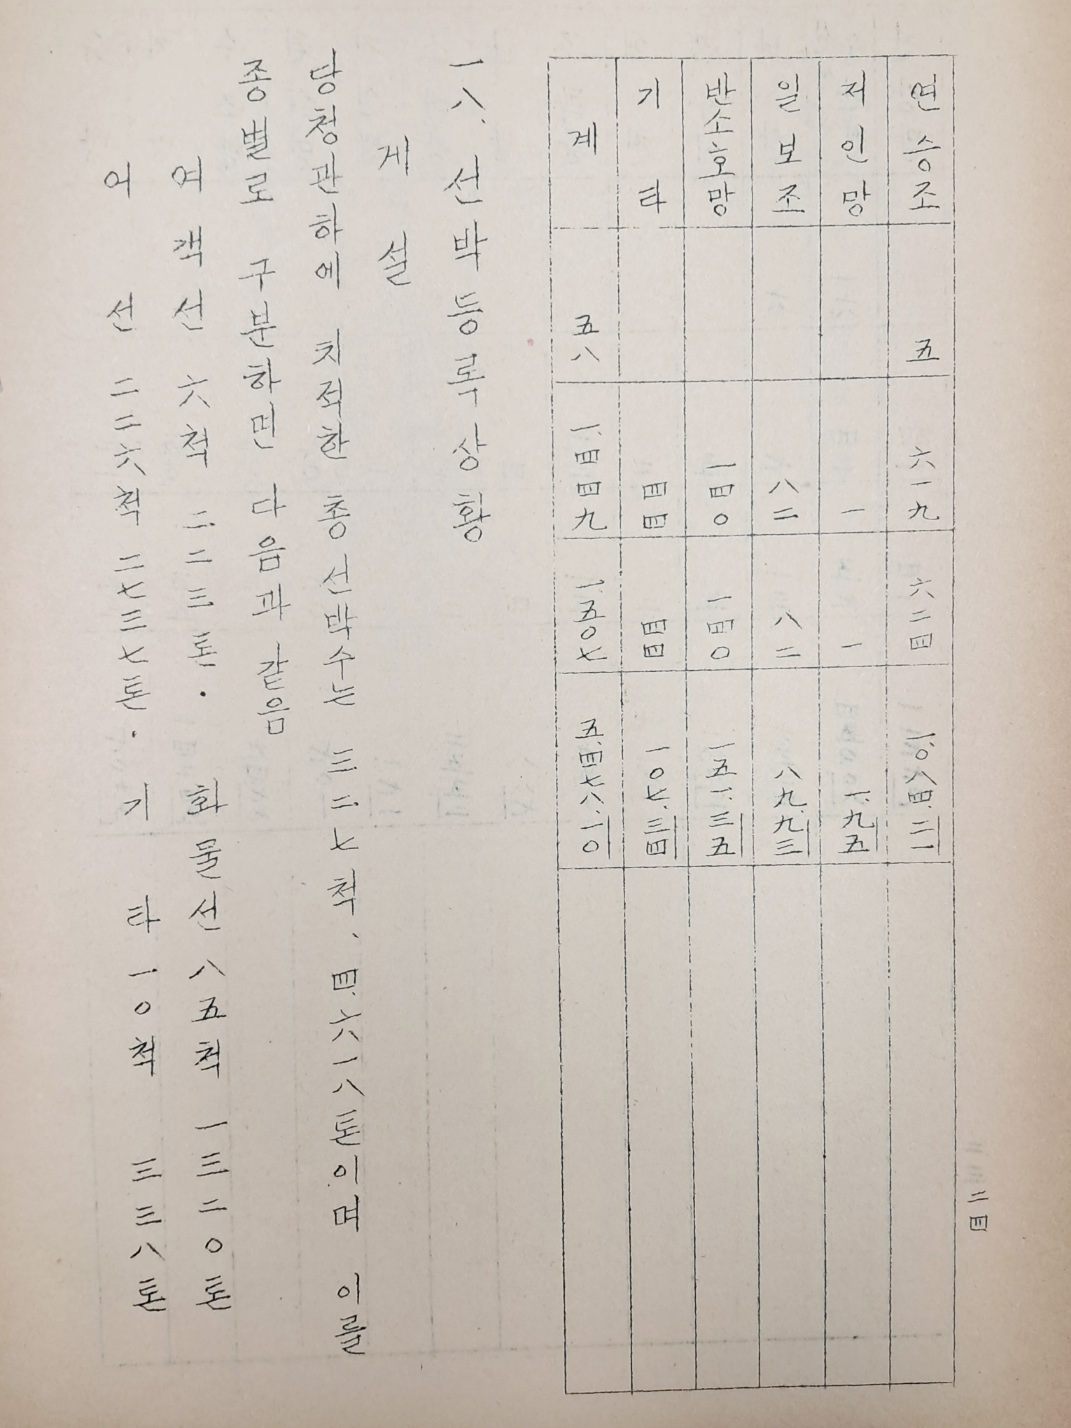 연승조 五 六一九 六二四 一、〇八四.二一
저인망 一 一 一.九五
일보조 八二 八二 八九.九三
반소호망 一四〇 一四〇 一五一.三五
기타 四四 四四 一〇七.三四
계 五八 一、四四九 一、五〇七 五、四七八.一〇
一八、선박등록상황
게설
당청관하에 치적한 총 선박수는 三二七척、四、六一八톤이며 이를
종별로 구분하면 다음과 같음
여객선 六척 二二三톤. 화물선 八五척 一三二〇톤
어선 二二六척 二七三七톤. 기타 一〇척 三三八톤
二四